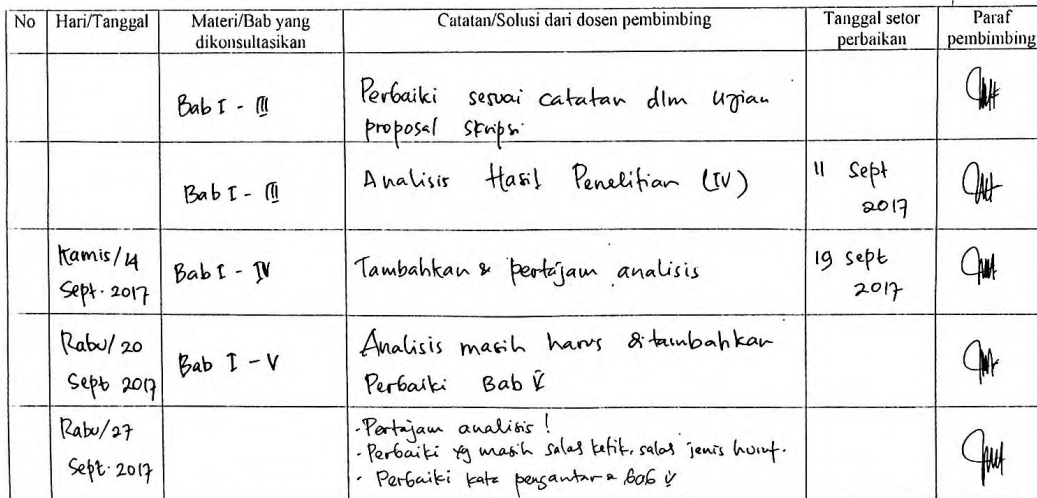 No Hari/Tanggal Materi/Bab yang dikonsultasikan Catatan/Solusi dari dosen pembimbing Tanggal setor perbaikan Paraf pembimbing
Bab I - III
Perbaiki sesuai catatan dlm ujian
proposal skripsi.
Bab I - III
Analisis Hasil Penelitian (IV)
11 Sept
2017
Kamis/14
Sept. 2017
Bab I - IV
Tambahkan & pertajam analisis
19 sept
2017
Rabu/20
Sept 2017
Bab I - V
Analisis masih harus ditambahkan
Perbaiki Bab V
Rabu/27
Sept. 2017
- Pertajam analisis!
- Perbaiki yg masih salah ketik, salah jenis huruf.
- Perbaiki kata pengantar & bab V